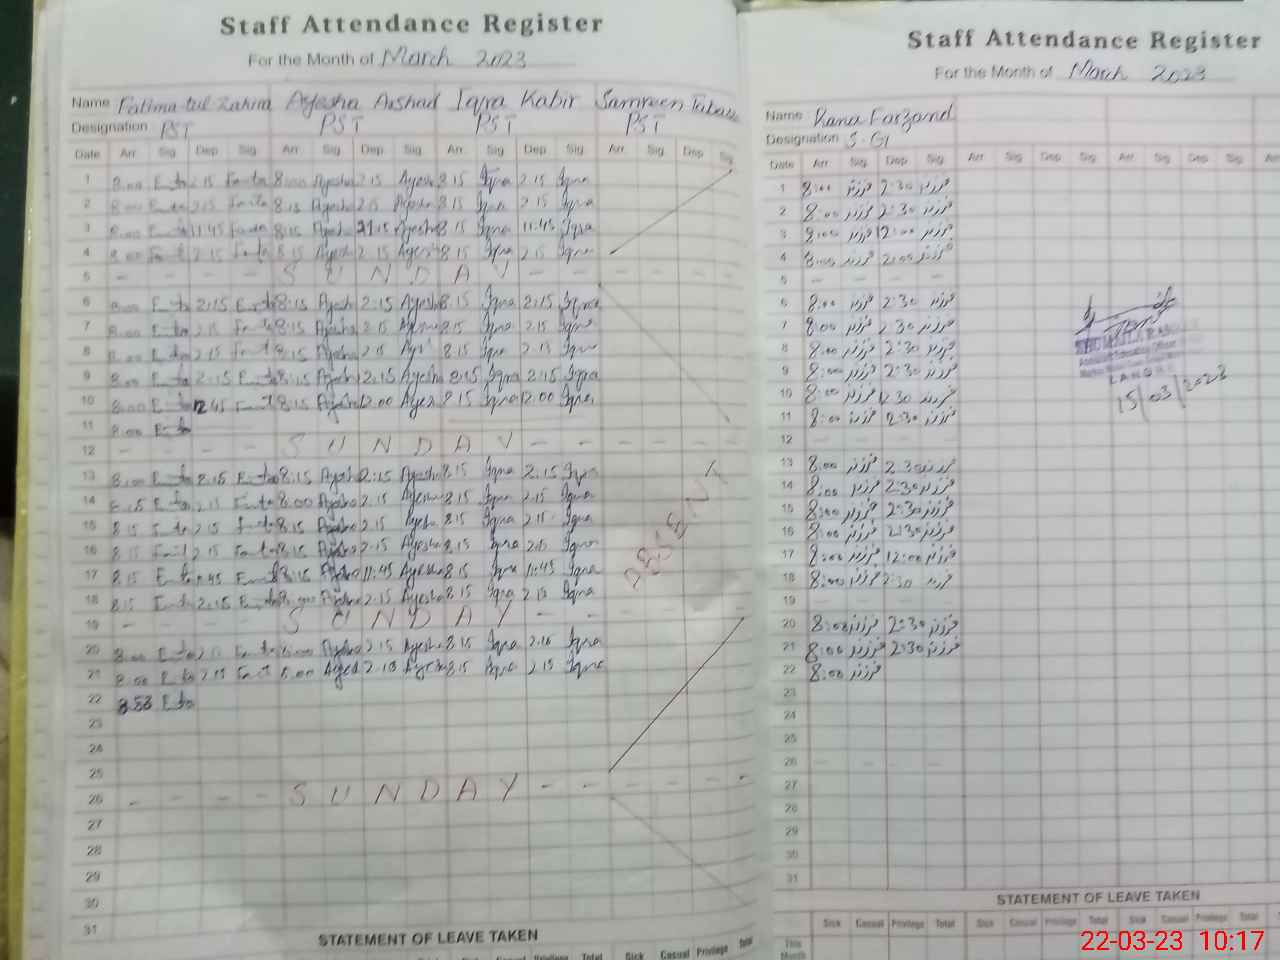 Staff Attendance Register
For the Month of March 2023
Name Fatima tul Zahra Ayesha Arshad Iqra Kabir Samreen
Designation PST PST PST PST
Date Arr. Sig. Dep Sig. Arr. Sig. Dep Sig. Arr. Sig. Dep Sig. Arr. Sig. Dep Sig.
1 8:00 2:15 8:00 Ayesha 2:15 Ayesha 8:15 Iqra 2:15 Iqra
2 8:00 2:15 8:15 Ayesha 2:15 Ayesha 8:15 Iqra 2:15 Iqra
3 8:00 11:45 8:15 Ayesha Ayesha 8:15 Iqra 11:45 Iqra
4 8:00 2:15 8:15 Ayesha 2:15 Ayesha 8:15 Iqra 2:15 Iqra
5 - - - SUNDAY - - -
6 8:00 2:15 8:15 Ayesha 2:15 Ayesha 8:15 Iqra 2:15 Iqra
7 8:00 2:15 8:15 Ayesha 2:15 Ayesha 8:15 Iqra 2:15 Iqra
8 8:00 2:15 8:15 Ayesha 2:15 8:15 Iqra 2:15 Iqra
9 8:00 2:15 8:15 Ayesha 2:15 Ayesha 8:15 Iqra 2:15 Iqra
10 8:00 8:15 Ayesha 12:00 Ayesha 8:15 Iqra 12:00 Iqra
11 8:00
12 - - - SUNDAY - - - - -
13 8:00 2:15 8:15 Ayesha 2:15 Ayesha 8:15 Iqra 2:15 Iqra
14 2:15 8:00 Ayesha 2:15 Ayesha 8:15 Iqra 2:15 Iqra
15 8:15 2:15 8:15 Ayesha 2:15 Ayesha 8:15 Iqra 2:15 Iqra
16 8:15 2:15 8:15 Ayesha 2:15 Ayesha 8:15 Iqra 2:15 Iqra
17 8:15 8:15 Ayesha 11:45 Ayesha 8:15 Iqra 11:45 Iqra
18 8:15 2:15 8:00 Ayesha 2:15 Ayesha 8:15 Iqra 2:15 Iqra
ABSENT
19 - - - SUNDAY - -
20 8:00 2:15 8:00 Ayesha 2:15 Ayesha 8:15 Iqra 2:15 Iqra
21 8:00 2:15 8:00 Ayesha 2:15 Ayesha 8:15 Iqra 2:15 Iqra
22 8:53
23
24
25
26 - - - - SUNDAY - - - - - -
27
28
29
30
31
STATEMENT OF LEAVE TAKEN
Sick Casual Privilege Total Sick Casual Privilege Total
Staff Attendance Register
For the Month of March 2023
Name Rana Farzand
Designation S.G
Date Arr. Sig. Dep Sig. Arr. Sig. Dep Sig. Arr. Sig. Dep Sig.
1 8:00 فرزند 2:30 فرزند
2 8:00 فرزند 2:30 فرزند
3 8:00 فرزند 12:00 فرزند
4 8:00 فرزند 2:00 فرزند
5 - - - -
6 8:00 فرزند 2:30 فرزند
7 8:00 فرزند 2:30 فرزند
8 8:00 فرزند 2:30 فرزند
9 8:00 فرزند 2:30 فرزند
10 8:00 فرزند 2:30 فرزند
11 8:00 فرزند 2:30 فرزند
12 - - - -
13 8:00 فرزند 2:30 فرزند
14 8:00 فرزند 2:30 فرزند
15 8:00 فرزند 2:30 فرزند
16 8:00 فرزند 2:30 فرزند
17 8:00 فرزند 12:00 فرزند
18 8:00 فرزند 2:30 فرزند
19 - - - -
20 8:00 فرزند 2:30 فرزند
21 8:00 فرزند 2:30 فرزند
22 8:00 فرزند
23
24
25
26 - - - -
27
28
29
30
31
LAHORE
15/03/2023
STATEMENT OF LEAVE TAKEN
Sick Casual Privilege Total Sick Casual Privilege Total Sick Casual Privilege Total
This Month
22-03-23 10:17